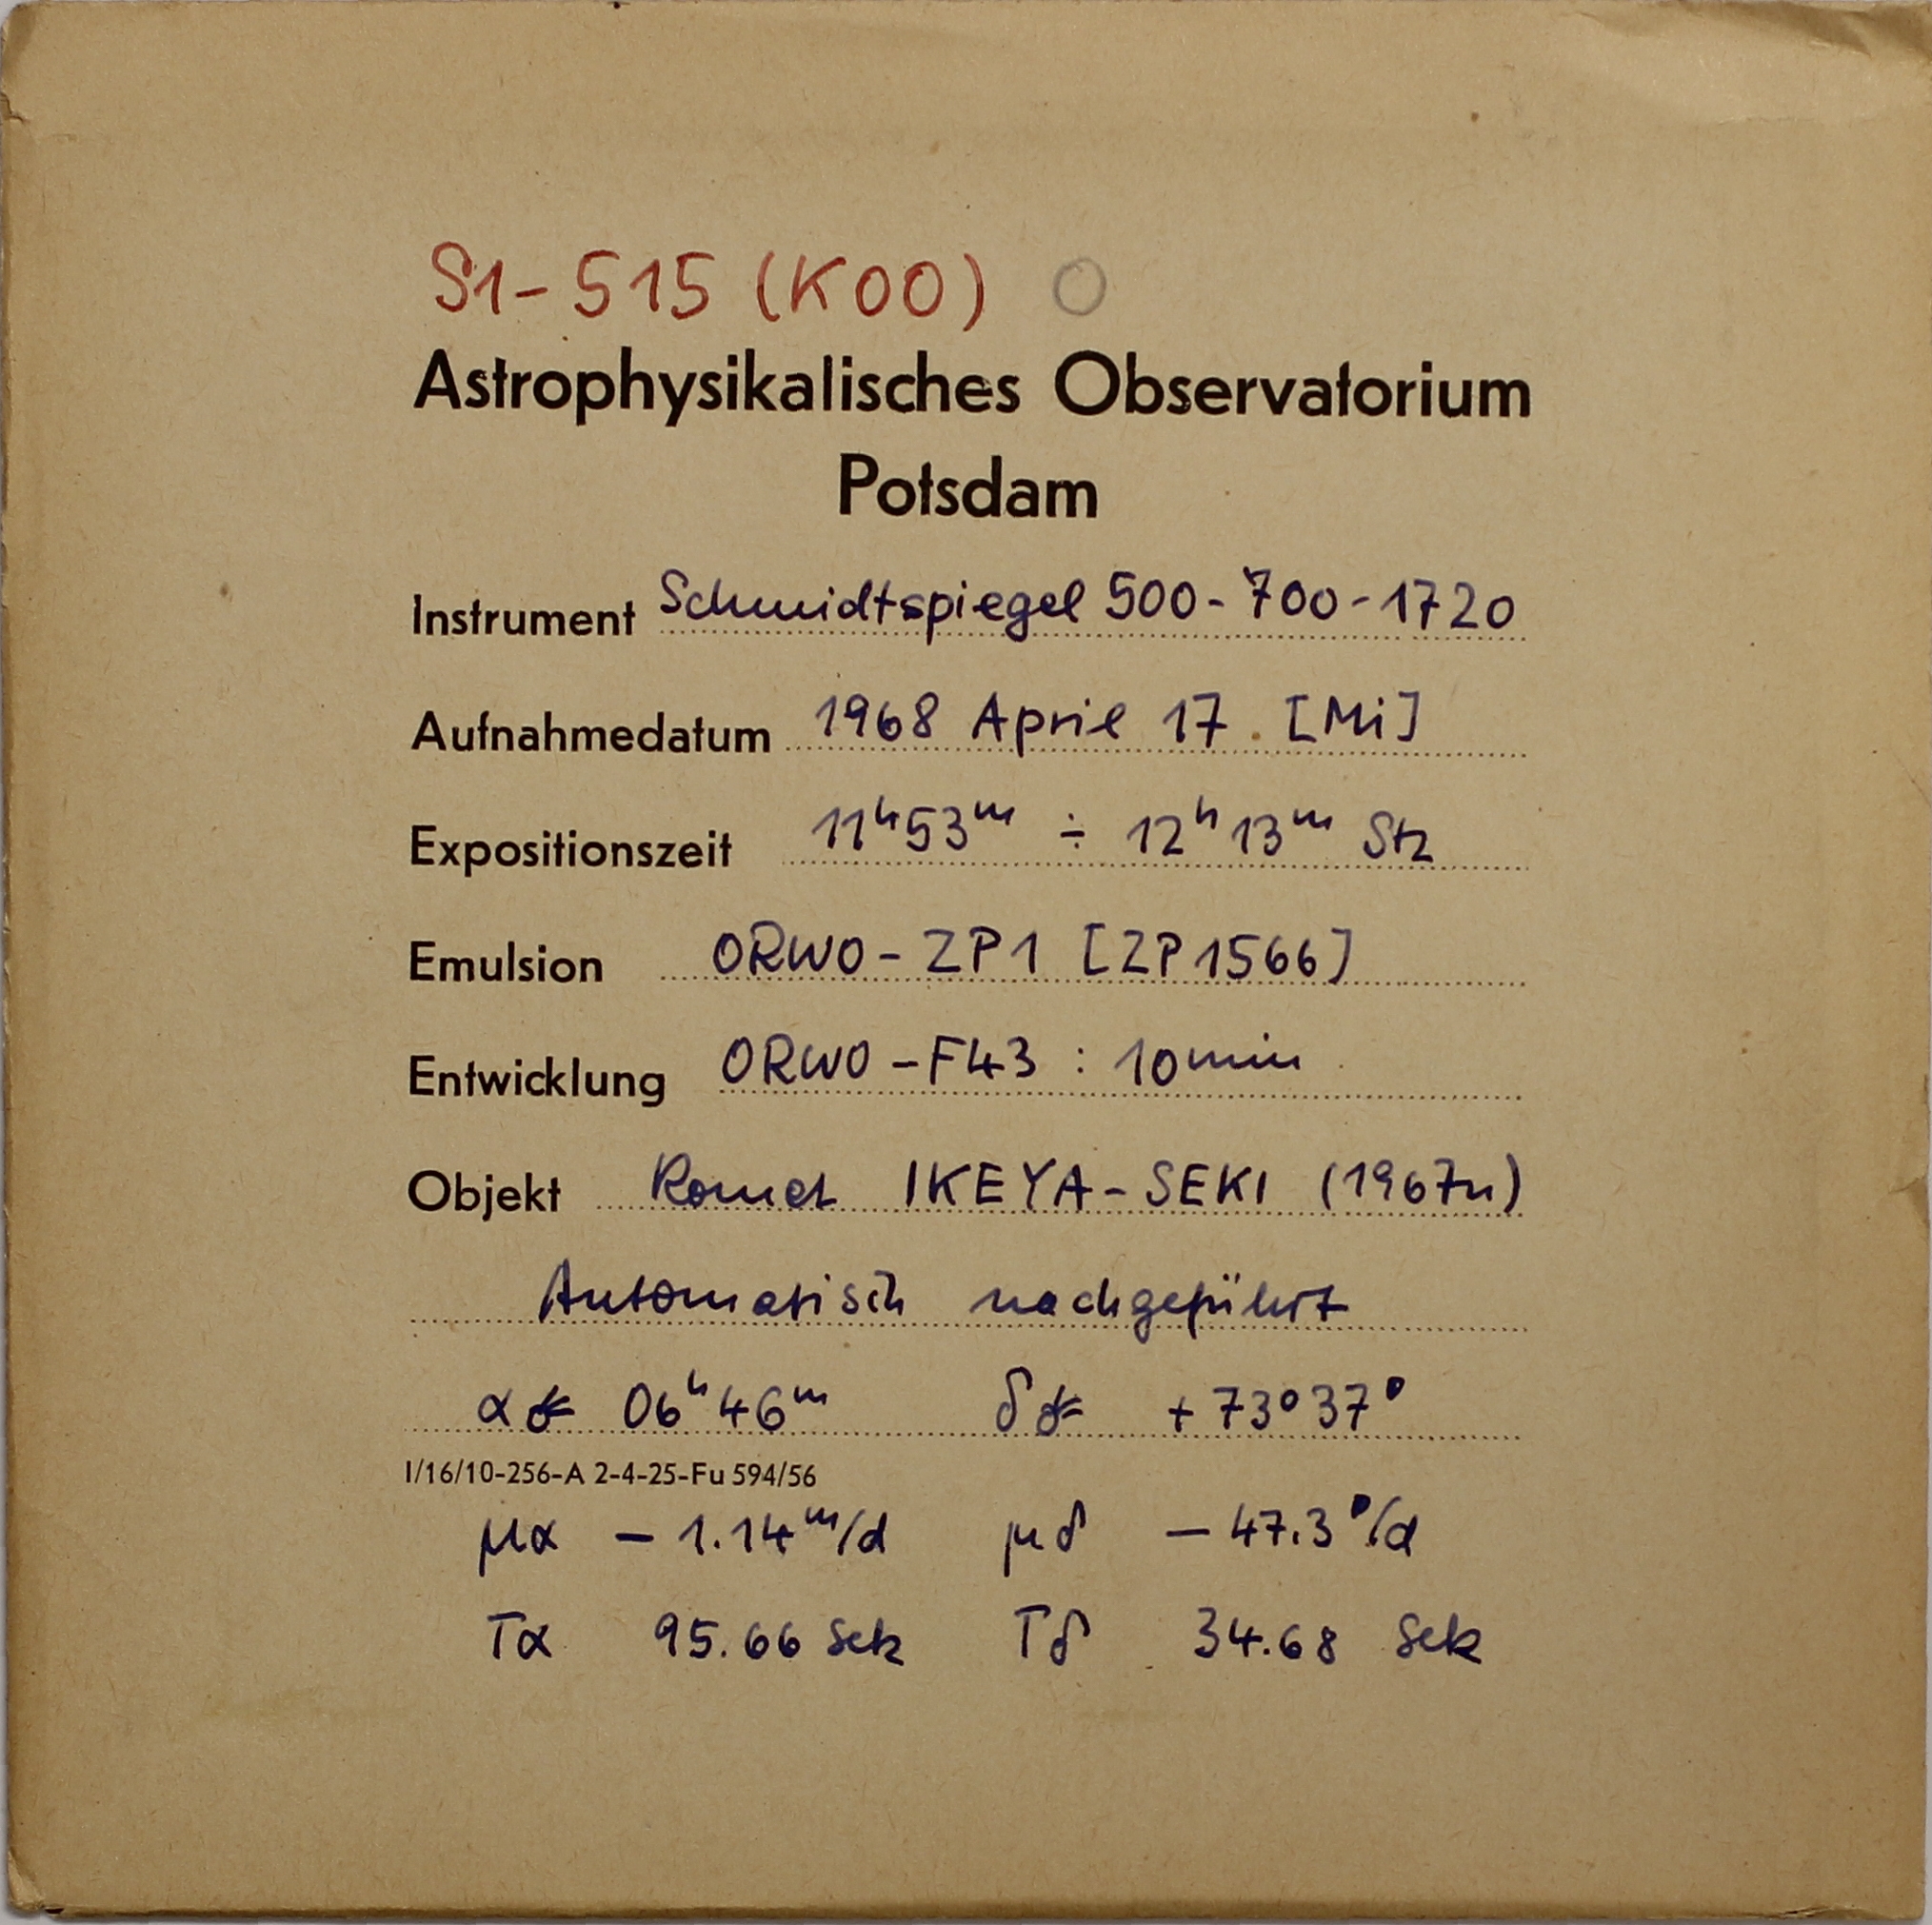 S1-515 (K00) O
Astrophysikalisches Observatorium
Potsdam
Instrument Schmidtspiegel 500-700-1720
Aufnahmedatum 1968 April 17. [Mi]
Expositionszeit 11ʰ53ᵐ ÷ 12ʰ13ᵐ Stz
Emulsion ORWO-ZP1 [ZP1566]
Entwicklung ORWO-F43 : 10min
Objekt Komet IKEYA-SEKI (1967n)
Automatisch nachgeführt
α☄ 06ʰ46ᵐ δ☄ +73°37'
I/16/10-256-A 2-4-25-Fu 594/56
μα – 1.14ᵐ/d μδ – 47.3'/d
Tα 95.66 Sek Tδ 34.68 Sek